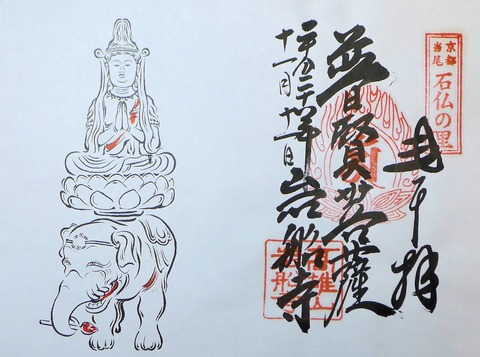 京都
当尾
石仏の里
奉拝
普賢菩薩
岩船寺
十一月十一日
高雄山
岩船寺